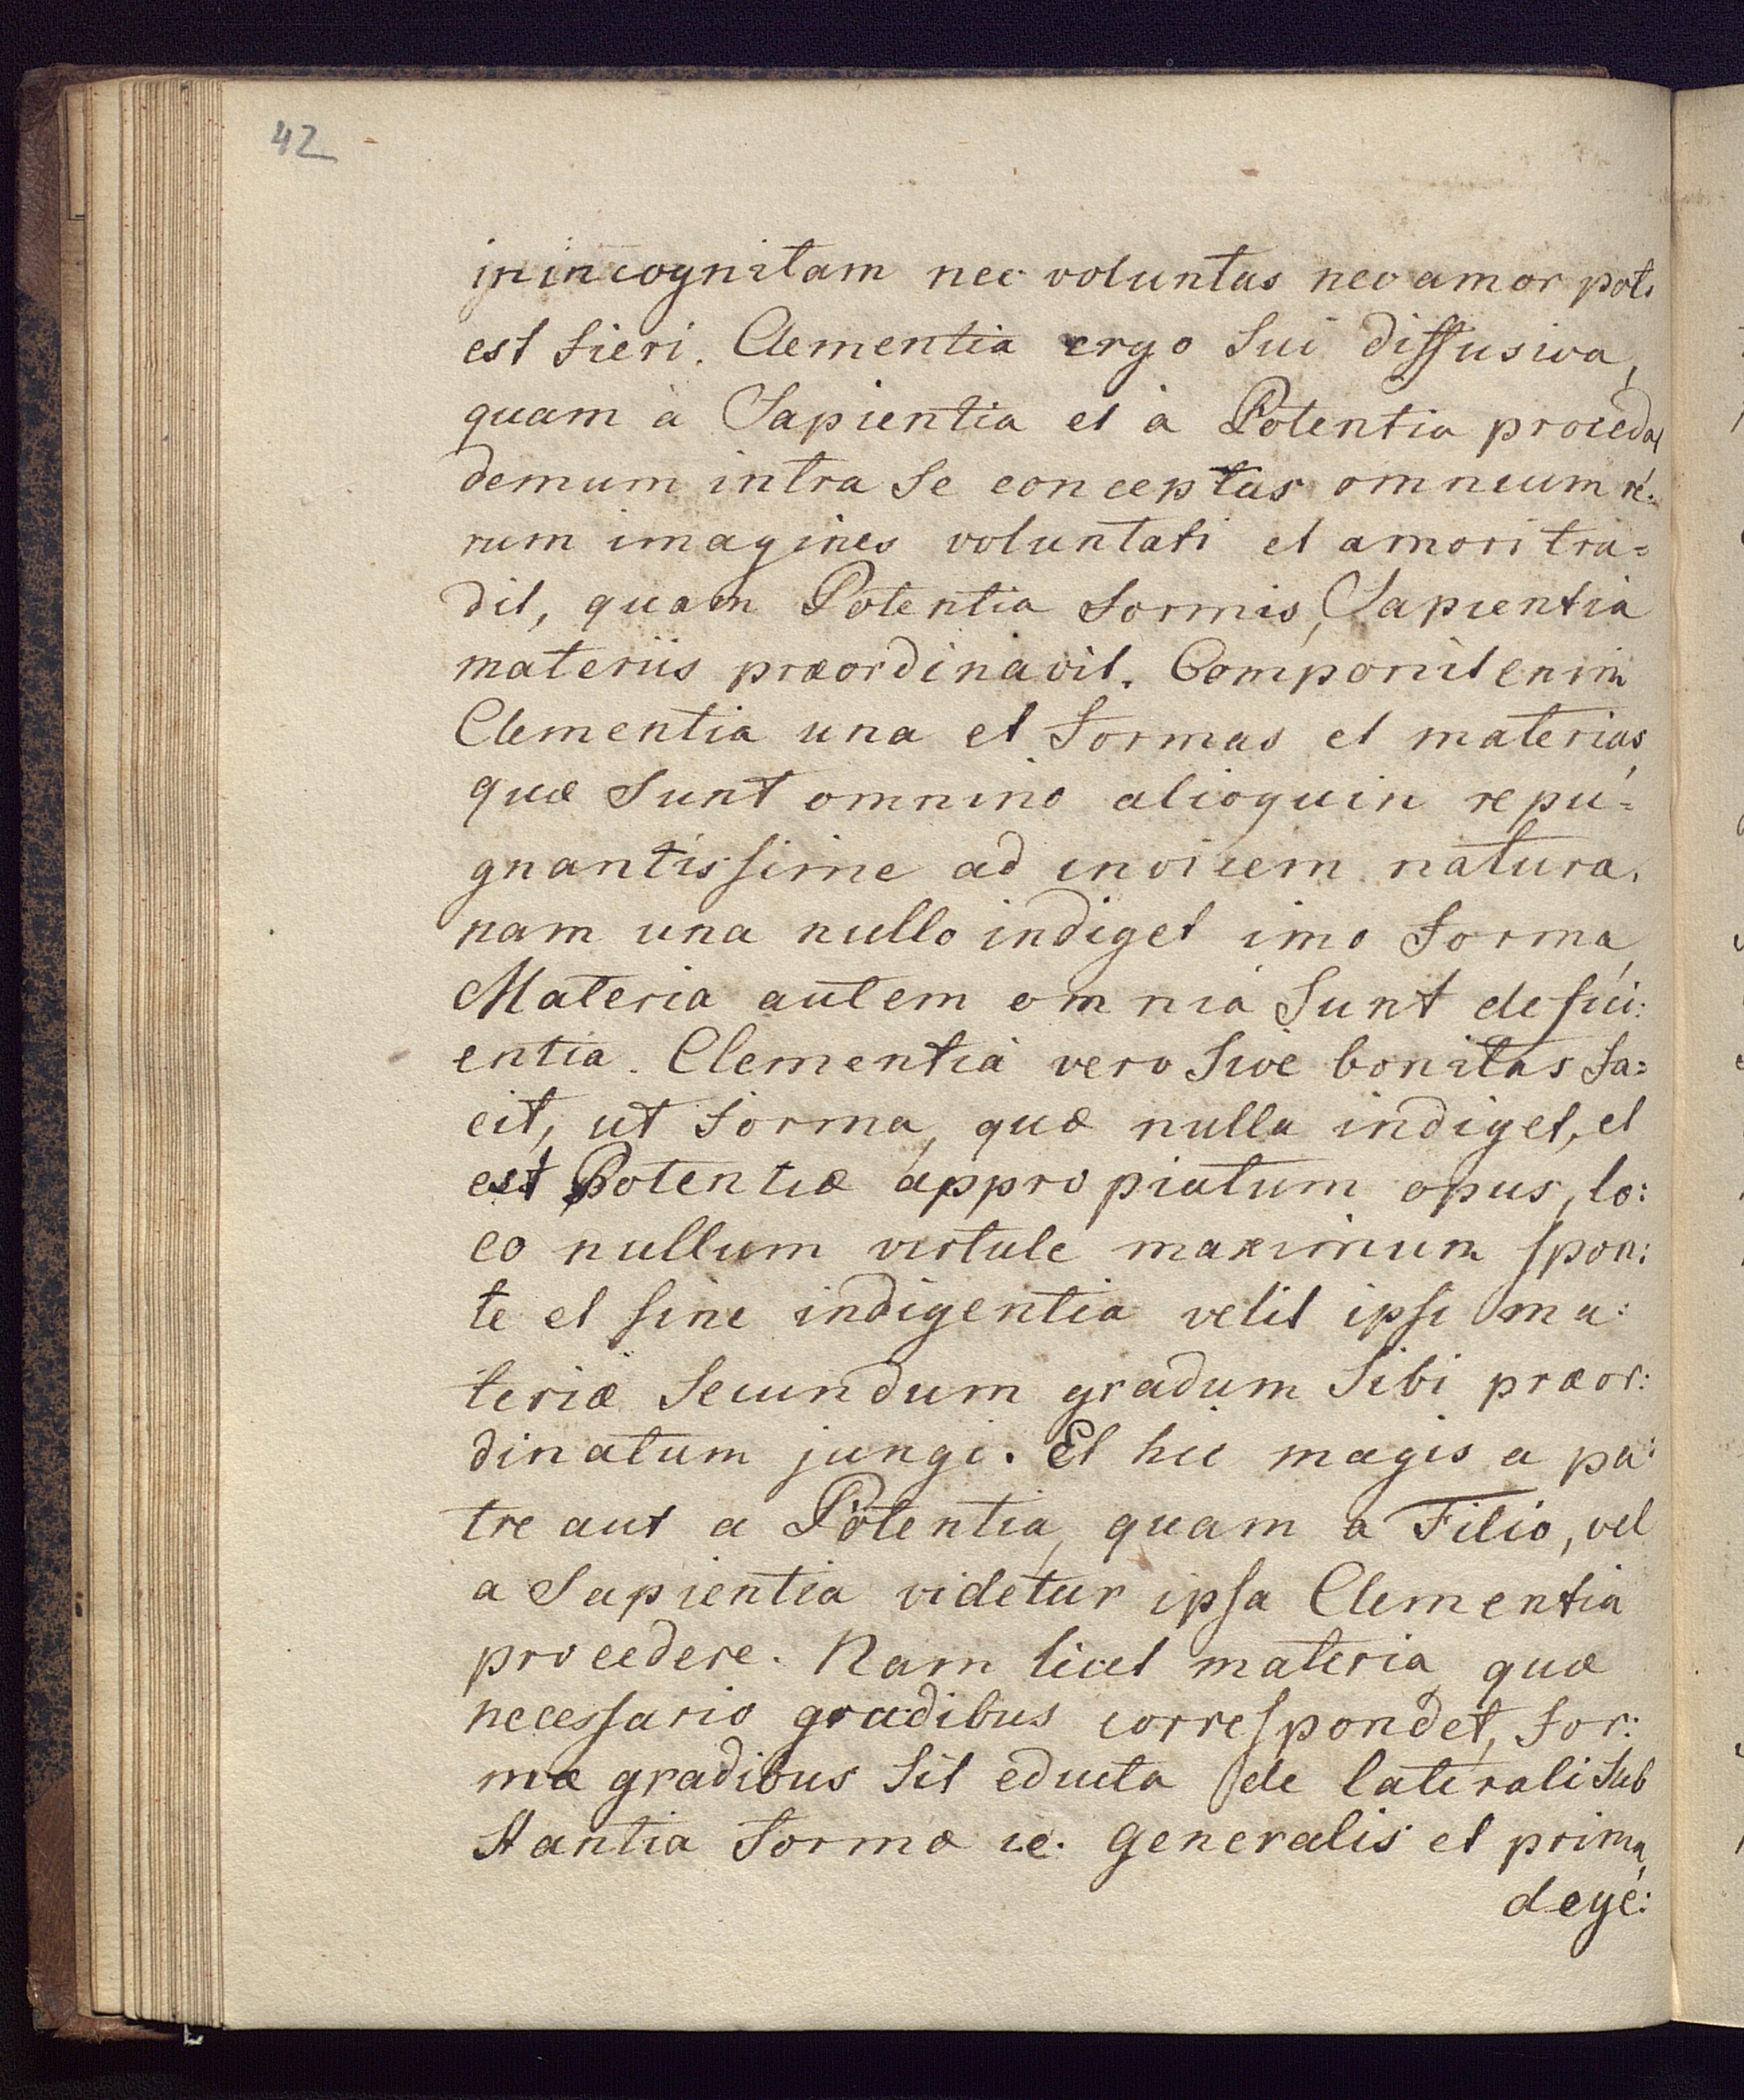 42
in incognitam nec voluntas nec amor pot.
est fieri. Clementia ergo sui diffusiva,
quam à Sapientia et à Potentia procedat
demum intra se conceptas omnium re-
rum imagines voluntati et amori tra=
dit, quam Potentia formis, Sapientia
materiis præordinavit. Componit enim
Clementia una et formas et materias,
quæ sunt omnino alioquin repu=
gnantissime ad invicem natura.
nam una nullo indiget imo forma,
Materia autem omnia sunt defici:
entia. Clementia vero sive bonitas fa=
cit, ut forma, quæ nulla indiget, et
est Potentiæ appropiatum opus, lo:
co nullum virtute maximum spon:
te et sine indigentia velit ipsi ma:
teriæ secundum gradum sibi præor:
dinatum jungi. Et hic magis a pa:
tre aut a Potentia, quam a Filio, vel
a Sapientia videtur ipsa Clementia
procedere. Nam licet materia, quæ
necessario gradibus correspondet, for:
mæ gradibus sit educta de laterali sub
stantia formæ ie. generalis et prima,
dege: